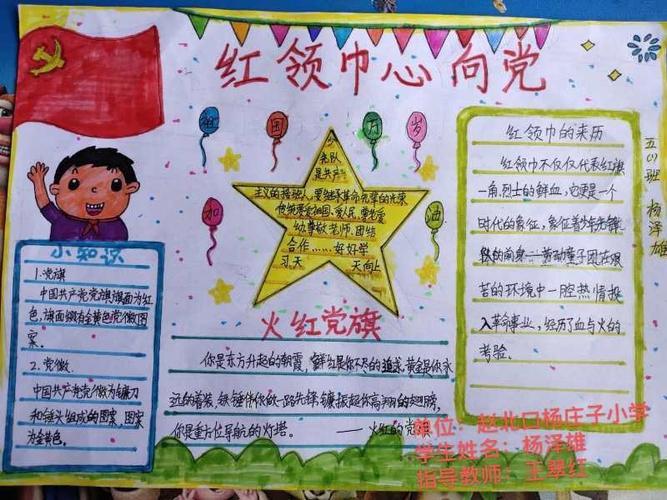 红领巾心向党
祖
国
万
岁
加
油
少
先队
是共产
主义的接班人,要继承革命先辈的光荣
传统要爱祖国、爱人民,要
幼尊敬老师、团结
合作……好好学
习、天 天向上
小知识
1.党旗
中国共产党党旗旗面为红
色,旗面缀有金黄色党徽图
案。
2.党徽
中国共产党党徽为镰刀
和锤头组成的图案,图案
为金黄色。
火红党旗
你是东方升起的朝霞,鲜红是你不尽的追求,黄金是你永
远的着装,铁锤伴你做一路先锋,镰振起你高翔的翅膀,
你是 方位导航的灯塔。 —— 火红的党
红领巾的来历
红领巾不仅仅代表红旗
一角,烈士的鲜血,它更是一个
时代的象征,象征着少年先锋
队的前身——劳动童子团在艰
苦的环境中一腔热情投
入革命事业,经历了血与火的
考验。
五(1)班 杨泽雄
单位:赵北口杨庄子小学
学生姓名:杨泽雄
指导教师:王翠红